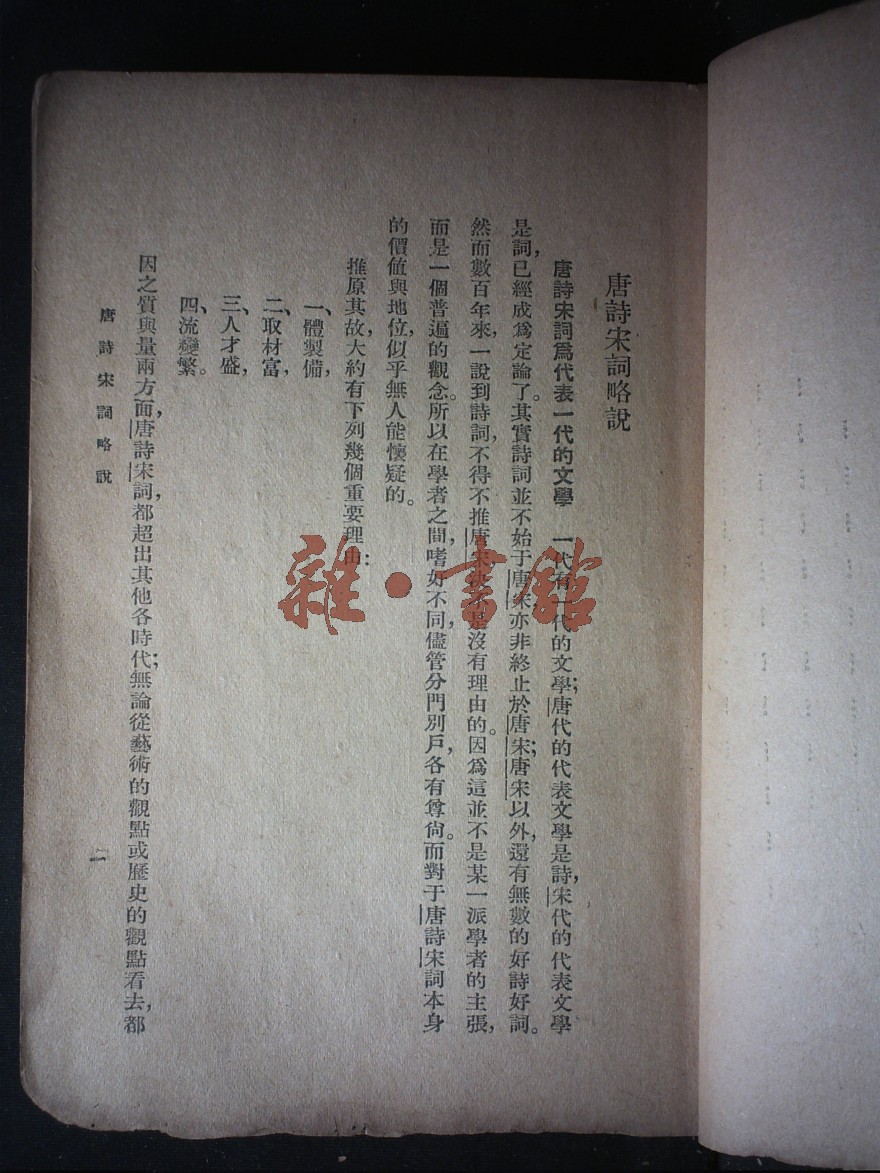 唐詩宋詞略說
唐詩宋詞爲代表一代的文學　一代有一代的文學；唐代的代表文學是詩，宋代的代表文學
是詞，已經成爲定論了。其實詩詞並不始于唐宋亦非終止於唐宋；唐宋以外，還有無數的好詩好詞。
然而數百年來，一說到詩詞，不得不推唐宋決不是沒有理由的。因爲這並不是某一派學者的主張，
而是一個普遍的觀念。所以在學者之間，嗜好不同，儘管分門別戶，各有尊尙。而對于唐詩宋詞本身
的價値與地位，似乎無人能懷疑的。
推原其故，大約有下列幾個重要理由：
一、體製備，
二、取材富，
三、人才盛，
四、流變繁。
因之質與量兩方面，唐詩宋詞，都超出其他各時代；無論從藝術的觀點或歷史的觀點看去，都
唐詩宋詞略說
雜·書館